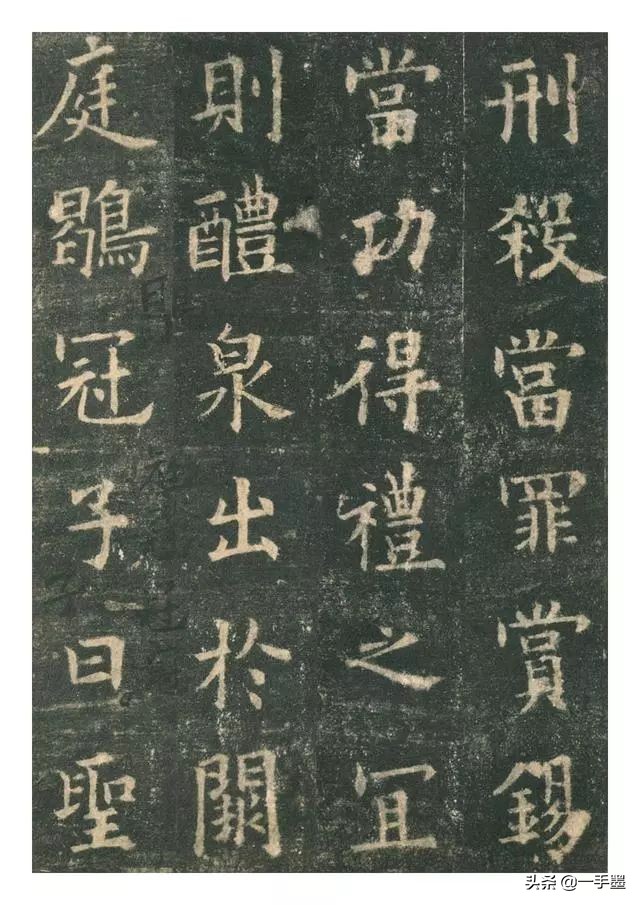 刑殺當罪賞錫
當功得禮之冝
則醴泉出於闕
庭鶡冠子曰聖
头条 @一手墨